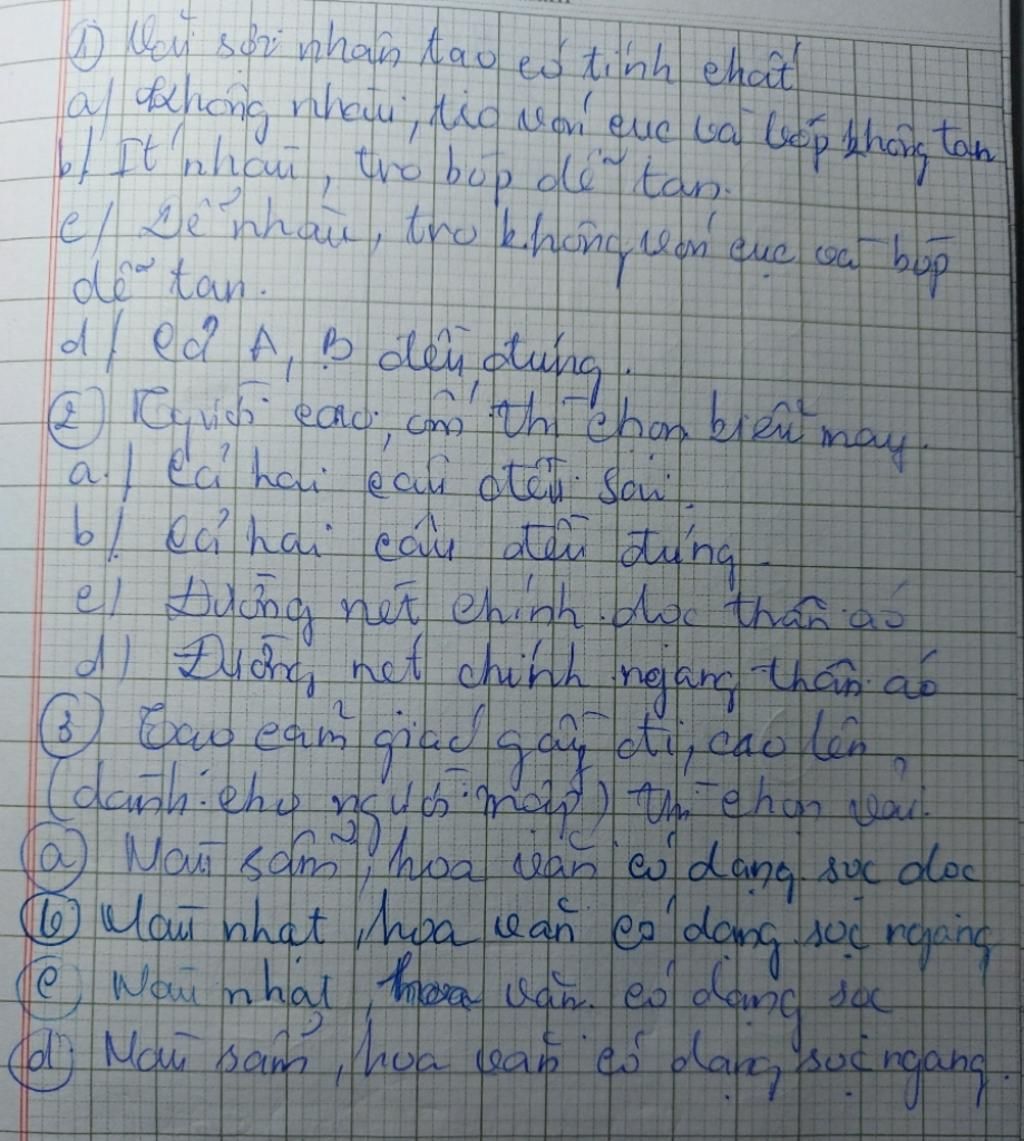 ① Vải sợi nhân tạo có tính chất
a/ Không nhàu, tro vón cục và bóp không tan
b/ Ít nhàu, tro bóp dễ tan.
c/ Dễ nhàu, tro không vón cục và bóp
dễ tan.
d/ Cả A, B đều đúng.
② Người cao, ốm thì chọn kiểu may.
a./ Cả hai câu đều sai.
b/. Cả hai câu đều đúng
c/ Đường nét chính dọc thân áo
d/ Đường nét chính ngang thân áo
③ Tạo cảm giác gầy đi, cao lên
(dành cho người mập) thì chọn vải.
ⓐ Màu sẩm, hoa văn có dạng sọc dọc
ⓑ Màu nhạt, hoa văn có dạng sọc ngang
ⓒ Màu nhạt, hoa văn có dạng sọc
ⓓ Màu sẩm, hoa văn có dạng sọc ngang.